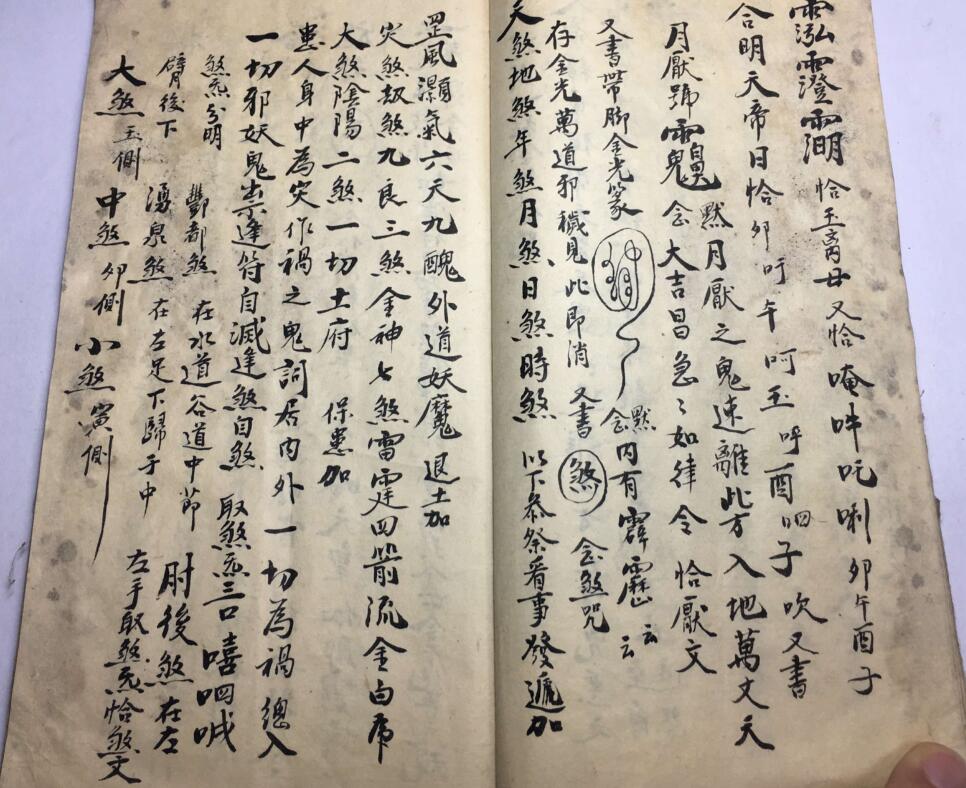 澄 恰玉离母又恰唵吽吒唎卯午酉子
合明天帝日恰卯吁午呵玉呼酉呬子吹又書
月厭號 默念大吉昌急〻如律令 恰厭文
月厭之鬼速離此方入地萬丈天
又書帶脚金光篆 默念内有霹靂云云
存金光萬道邪穢見此即消 又書煞 念煞咒
天煞地煞年煞月煞日煞時煞 以下叅祭看事發遞加
罡風灝氣六天九醜外道妖魔退土加
灾煞劫煞九良三煞金神七煞雷霆四箭流金白虎
大煞陰陽二煞一切土府 保患加
患人身中為灾作禍之鬼詞居内外一切為禍總入
一切邪妖鬼祟逢符自滅逢煞自煞 取煞炁三口嘻呬
煞炁分明 酆都煞 在水道谷道中節 肘後煞在左
臂後下 湧泉煞 在左足下歸于中 左手取煞炁恰煞文
大煞玉側 中煞卯側 小煞寅側